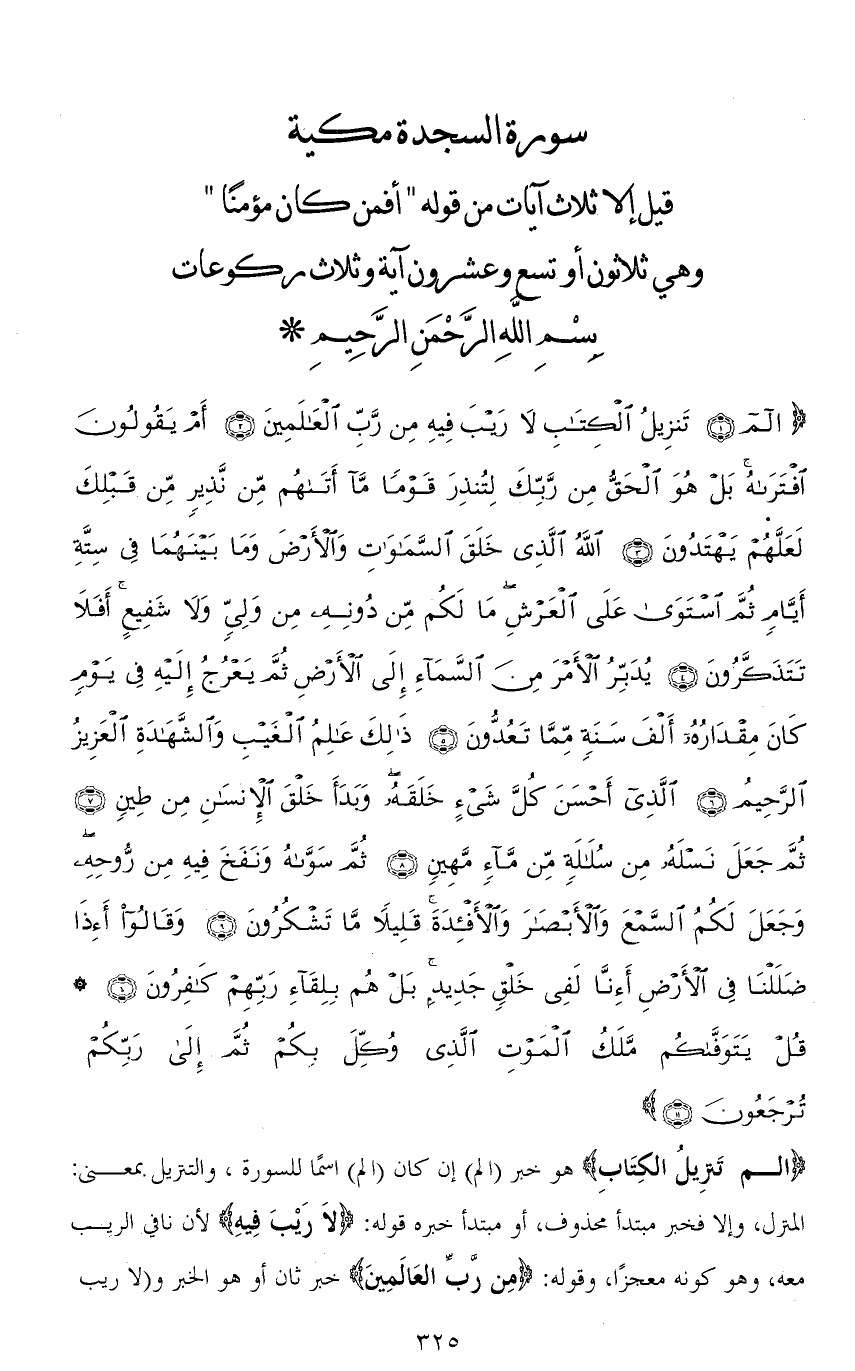 سورة السجدة مكية
قيل إلا ثلاث آيات من قوله "أفمن كان مؤمنًا"
وهي ثلاثون أو تسع وعشرون آية وثلاث ركوعات
بِسْمِ اللَّهِ الرَّحْمَنِ الرَّحِيمِ *
﴿ الٓمٓ ۝١ تَنزِيلُ ٱلْكِتَٰبِ لَا رَيْبَ فِيهِ مِن رَّبِّ ٱلْعَٰلَمِينَ ۝٢ أَمْ يَقُولُونَ
ٱفْتَرَىٰهُ ۚ بَلْ هُوَ ٱلْحَقُّ مِن رَّبِّكَ لِتُنذِرَ قَوْمًا مَّآ أَتَىٰهُم مِّن نَّذِيرٍ مِّن قَبْلِكَ
لَعَلَّهُمْ يَهْتَدُونَ ۝٣ ٱللَّهُ ٱلَّذِى خَلَقَ ٱلسَّمَٰوَٰتِ وَٱلْأَرْضَ وَمَا بَيْنَهُمَا فِى سِتَّةِ
أَيَّامٍ ثُمَّ ٱسْتَوَىٰ عَلَى ٱلْعَرْشِ ۖ مَا لَكُم مِّن دُونِهِۦ مِن وَلِىٍّ وَلَا شَفِيعٍ ۚ أَفَلَا
تَتَذَكَّرُونَ ۝٤ يُدَبِّرُ ٱلْأَمْرَ مِنَ ٱلسَّمَآءِ إِلَى ٱلْأَرْضِ ثُمَّ يَعْرُجُ إِلَيْهِ فِى يَوْمٍ
كَانَ مِقْدَارُهُۥٓ أَلْفَ سَنَةٍ مِّمَّا تَعُدُّونَ ۝٥ ذَٰلِكَ عَٰلِمُ ٱلْغَيْبِ وَٱلشَّهَٰدَةِ ٱلْعَزِيزُ
ٱلرَّحِيمُ ۝٦ ٱلَّذِىٓ أَحْسَنَ كُلَّ شَىْءٍ خَلَقَهُۥ ۖ وَبَدَأَ خَلْقَ ٱلْإِنسَٰنِ مِن طِينٍ ۝٧
ثُمَّ جَعَلَ نَسْلَهُۥ مِن سُلَٰلَةٍ مِّن مَّآءٍ مَّهِينٍ ۝٨ ثُمَّ سَوَّىٰهُ وَنَفَخَ فِيهِ مِن رُّوحِهِۦ ۖ
وَجَعَلَ لَكُمُ ٱلسَّمْعَ وَٱلْأَبْصَٰرَ وَٱلْأَفْـِٔدَةَ ۚ قَلِيلًا مَّا تَشْكُرُونَ ۝٩ وَقَالُوٓا۟ أَءِذَا
ضَلَلْنَا فِى ٱلْأَرْضِ أَءِنَّا لَفِى خَلْقٍ جَدِيدٍۭ ۚ بَلْ هُم بِلِقَآءِ رَبِّهِمْ كَٰفِرُونَ ۝١٠ *
قُلْ يَتَوَفَّىٰكُم مَّلَكُ ٱلْمَوْتِ ٱلَّذِى وُكِّلَ بِكُمْ ثُمَّ إِلَىٰ رَبِّكُمْ
تُرْجَعُونَ ۝١١ ﴾
﴿الـــم تَنزِيلُ الكِتَابِ﴾ هو خبر (الم) إن كان (الم) اسمًا للسورة ، والتنزيل بمعنى:
المنزل، وإلا فخبر مبتدأ محذوف، أو مبتدأ خبره قوله: ﴿لاَ رَيْبَ فِيهِ﴾ لأن نافي الريب
معه، وهو كونه معجزًا، وقوله: ﴿مِن رَّبِّ العَالَمِينَ﴾ خبر ثان أو هو الخبر و(لا ريب
٣٢٥